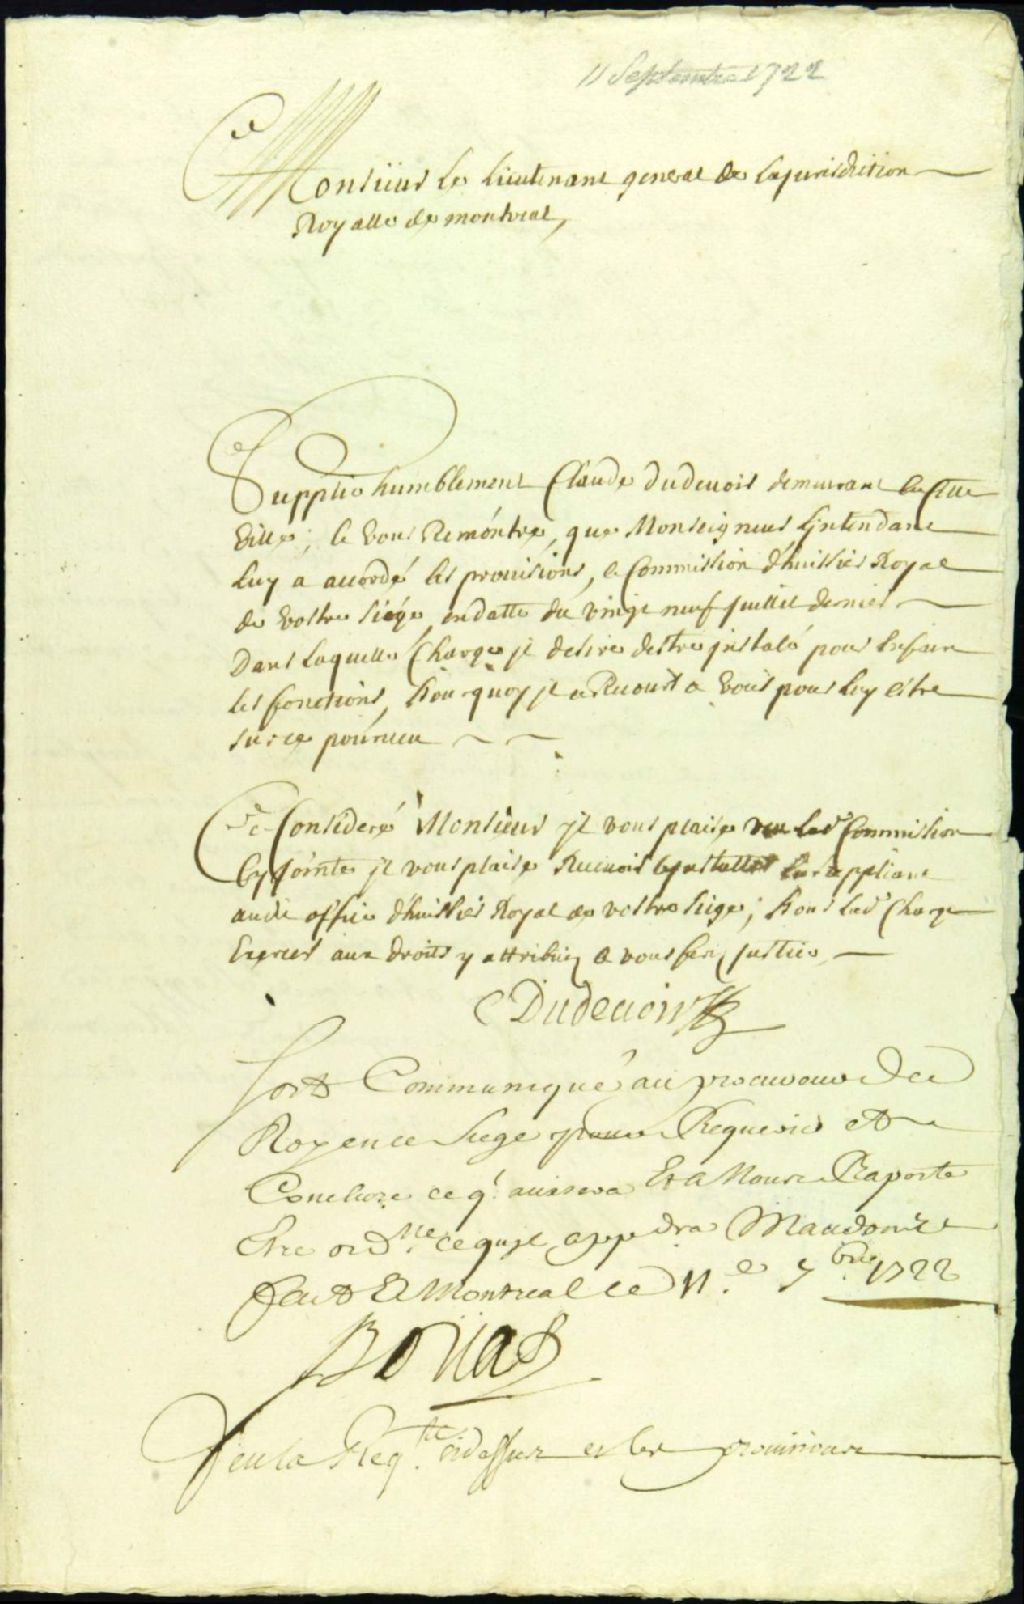 11 Septembre 1722
Monsieur Le Lieutenant general de la jurisdiction
Royalle de montreal,
Supplie humblement Claude dudevoir demeurant en cette
Ville; Et vous Remóntre, que Monseigneur L'jntendant
luy a accordé les provisions, et Commission d'huissier Royal
de vostre siége, en datte du vingt neuf juillet dernier
Dans laquelle Charge jl desire d'estre jnstalé pour En faire
les fonctions, Pourquoy jl a Recours a vous pour luy estre
sur ce pourueu
Ce Consideré Monsieur jl vous plaise veu lad^e Commission
Cy jointe jl vous plaise Recevoir et jnstaller Le suppliant
audit office d'huissier Royal de vostre siege; Pour lad^e Charge
Exercer aux droits y attribuez Et vous ferez justice
C Dudevoir
Soit Communiqué au procureur du
Roy en ce siege pour Requerir et
Conclure ce q^l. auisera Et a Nous Raporté
Etre ord^né ce qu'jl appdra Mandons &
fait a Montreal le 11^e. 7^bre. 1722
Veu la Req^te. cidessus et les prouisions